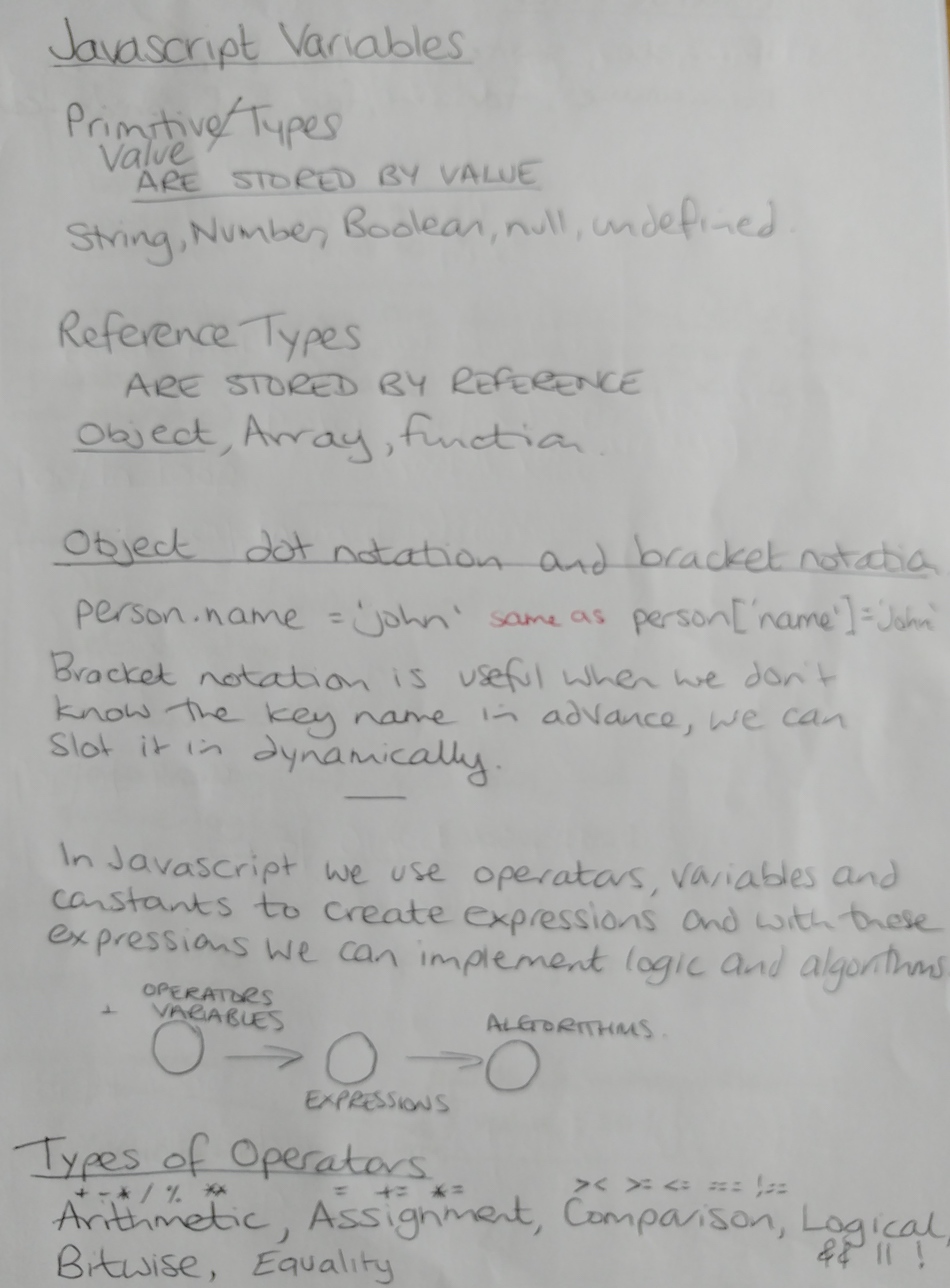 Javascript Variables
Primitive/Types
Value
ARE STORED BY VALUE
String, Number, Boolean, null, undefined.
Reference Types
ARE STORED BY REFERENCE
Object, Array, function.
Object dot notation and bracket notatio
person.name = 'john' same as person['name']='John'
Bracket notation is useful when we don't
know the key name in advance, we can
slot it in dynamically.
In Javascript we use operators, variables and
constants to create expressions and with these
expressions we can implement logic and algorithms
OPERATORS
+ VARIABLES
ALGORITHMS.
EXPRESSIONS
Types of Operators
+ - * / % ** = += *= > < >= <= === !==
Arithmetic, Assignment, Comparison, Logical,
&& || !
Bitwise, Equality